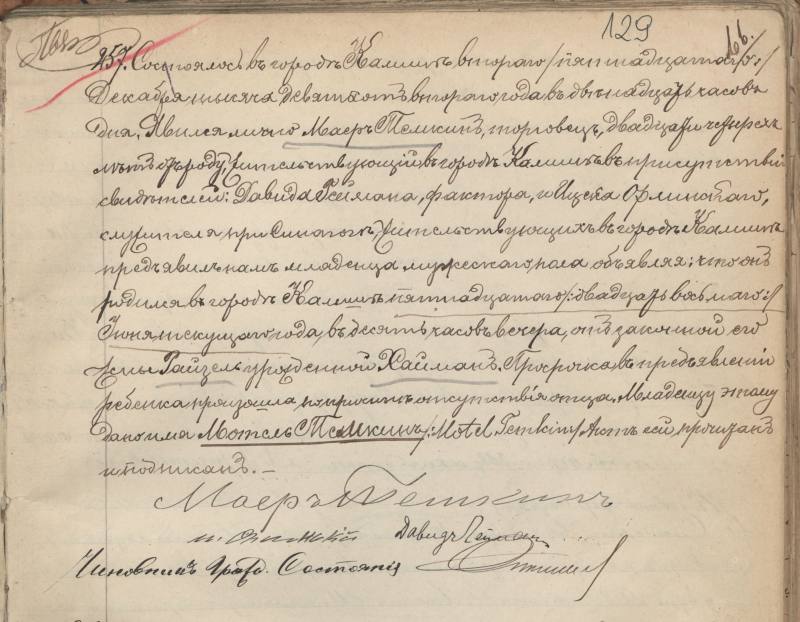 129
257. Состоялось въ городѣ Калишѣ второго /пятнадцатаго:/
Декабря тысяча девятьсотъ второго года въ двѣнадцать часовъ
дня. Явился лично Маеръ Темкинъ, торговецъ, двадцати четырехъ
лѣтъ отъ роду, жительствующій въ городѣ Калишѣ въ присутствіи
свидѣтелей: Давида Неймана, фактора, и Ицека Орлинскаго,
служителя при Синагогѣ, жительствующихъ въ городѣ Калишѣ
предъявилъ намъ младенца мужескаго пола объявляя: что онъ
родился въ городѣ Калишѣ пятнадцатаго /:двадцать восьмаго:/
Іюня текущаго года, въ десять часовъ вечера, отъ законной его
жены Райзель урожденной Хайманъ. Просрочка въ предъявленіи
ребенка произошла по причинѣ отсутствія отца. Младенцу этому
дано имя Мотель Темкинъ /:Motel Temkin/ Актъ сей прочитанъ
и подписанъ. —
Маеръ Темкинъ
Давидъ Нейманъ
Чиновникъ Гражд. Состоянія